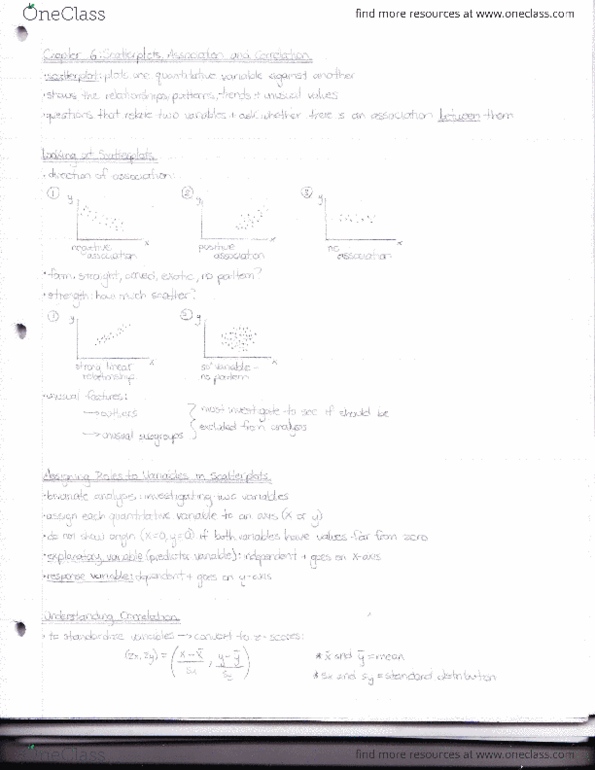 OneClass
find more resources at www.oneclass.com
Chapter 6: Scatterplots, Association and Correlation
• scatterplot: plots one quantitative variable against another
• shows the relationships, patterns, trends + unusual values
• questions that relate two variables + ask whether there is an association between them
Looking at Scatterplots
• direction of association:
① ② ③
y y y
x x x
negative association
positive association
no association
• form: straight, curved, exotic, no pattern?
• strength: how much scatter?
y y
x x
strong linear relationship
so variable - no pattern
• unusual features:
→ outliers
→ unusual subgroups
must investigate to see if should be
excluded from analysis
Assigning Roles to Variables in Scatterplots
• bivariate analysis: investigating two variables
• assign each quantitative variable to an axis (x or y)
• do not show origin (x=0, y=0) if both variables have values far from zero
• explanatory variable (predictor variable): independent + goes on x-axis
• response variable: dependent + goes on y-axis
Understanding Correlation
• to standardize variables → convert to z-scores:
(zx, zy) = (x - x̄ / sx, y - ȳ / sy)
* x̄ and ȳ = mean
* sx and sy = standard distribution
OneClass
find more resources at www.oneclass.com